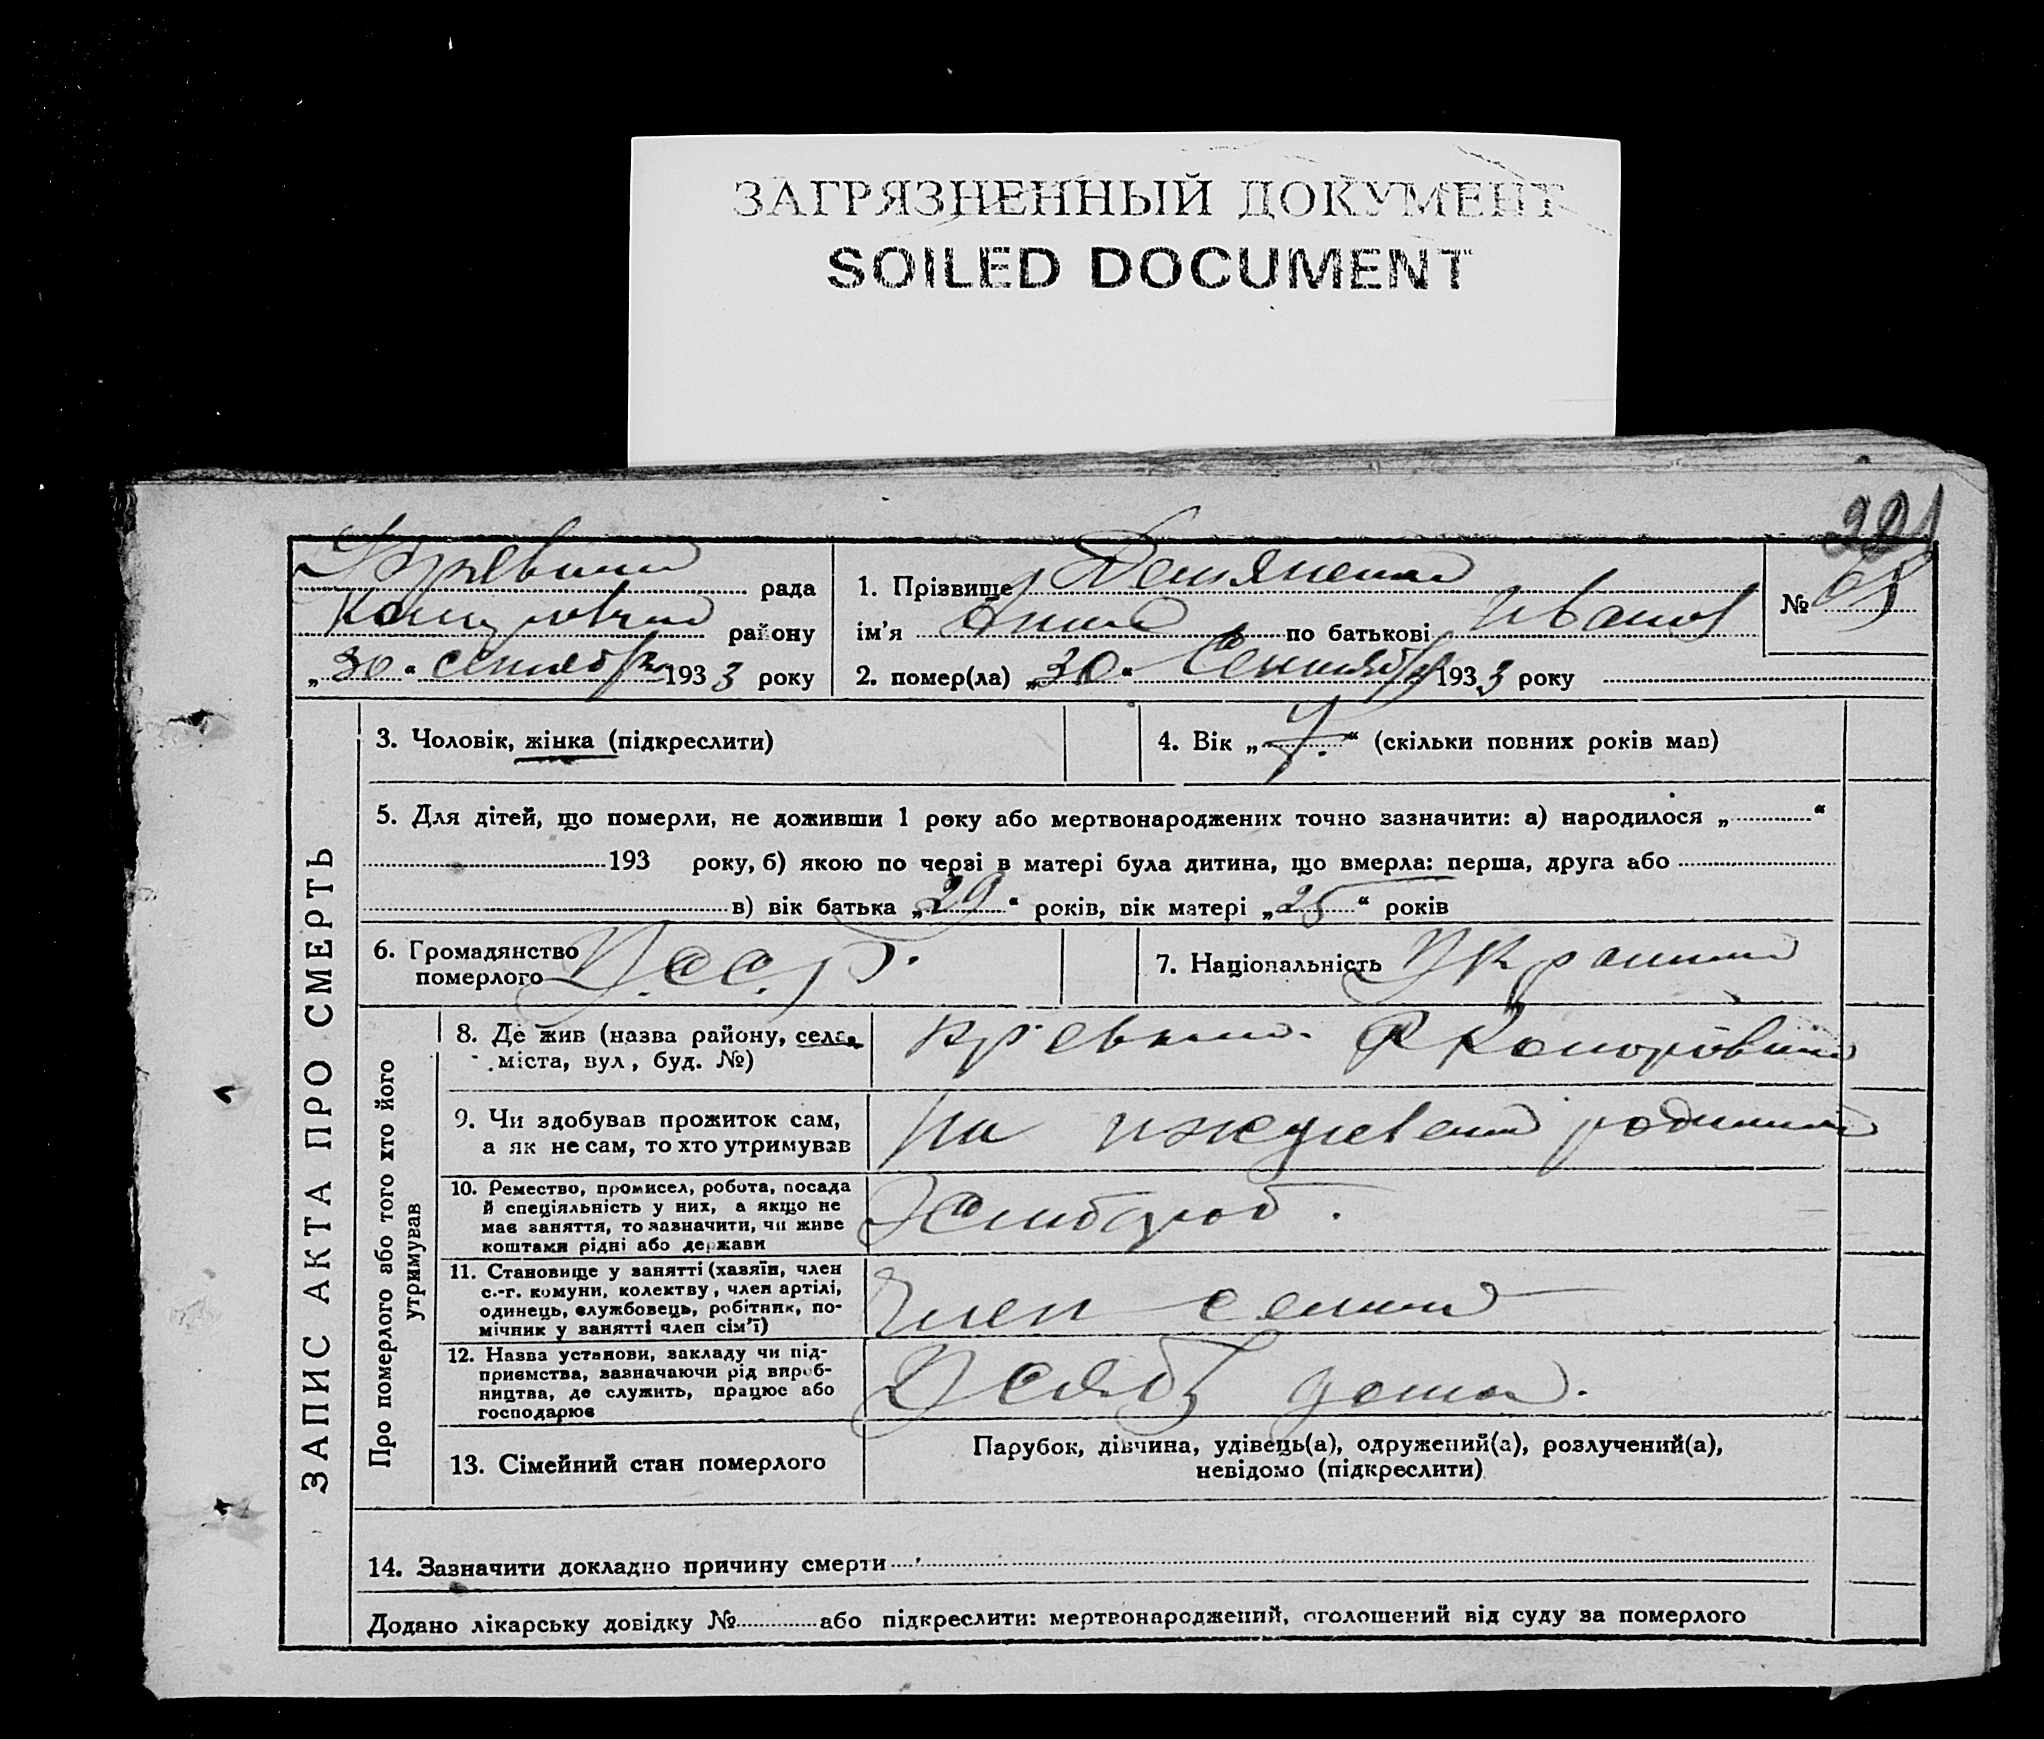 ЗАГРЯЗНЕННЫЙ ДОКУМЕНТ
SOILED DOCUMENT
221
рада
району
„30“ сентября 1933 року
1. Прізвище
ім’я по батькові Иванов
2. помер(ла) „30“ Сентября 1933 року
№ 68
ЗАПИС АКТА ПРО СМЕРТЬ
3. Чоловік, жінка (підкреслити)
4. Вік „“ (скільки повних років мав)
5. Для дітей, що померли, не доживши 1 року або мертвонароджених точно зазначити: а) народилося „ “
193 року, б) якою по черзі в матері була дитина, що вмерла: перша, друга або
в) вік батька „29“ років, вік матері „25“ років
6. Громадянство
померлого У.С.С.Р.
7. Національність
Про померлого або того хто його
утримував
8. Де жив (назва району, села,
міста, вул, буд. №)
9. Чи здобував прожиток сам,
а як не сам, то хто утримував
На
10. Ремество, промисел, робота, посада
й спеціяльність у них, а якщо не
має заняття, то зазначити, чи живе
коштами рідні або держави
Хлибороб.
11. Становище у занятті (хазяїн, член
с.-г. комуни, колективу, член артілі,
одинець, службовець, робітник, по-
мічник у занятті член сім’ї)
Член семи
12. Назва установи, закладу чи під-
приємства, зазначаючи рід вироб-
ництва, де служить, працює або
господарює
У себя дома.
13. Сімейний стан померлого
Парубок, дівчина, удівець(а), одружений(а), розлучений(а),
невідомо (підкреслити)
14. Зазначити докладно причину смерти
Додано лікарську довідку № або підкреслити: мертвонароджений, оголошений від суду за померлого